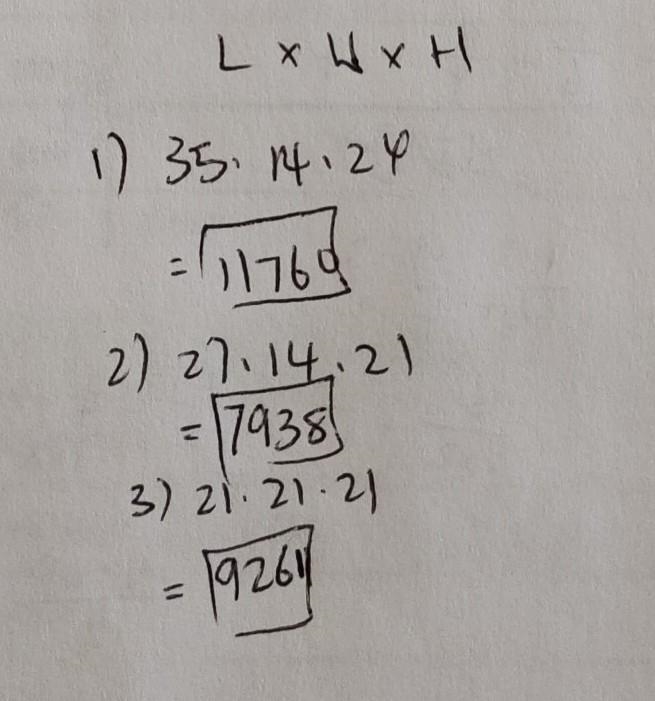 L x W x H
1) 35 · 14 · 24
= 11760
2) 27 · 14 · 21
= 7938
3) 21 · 21 · 21
= 9261